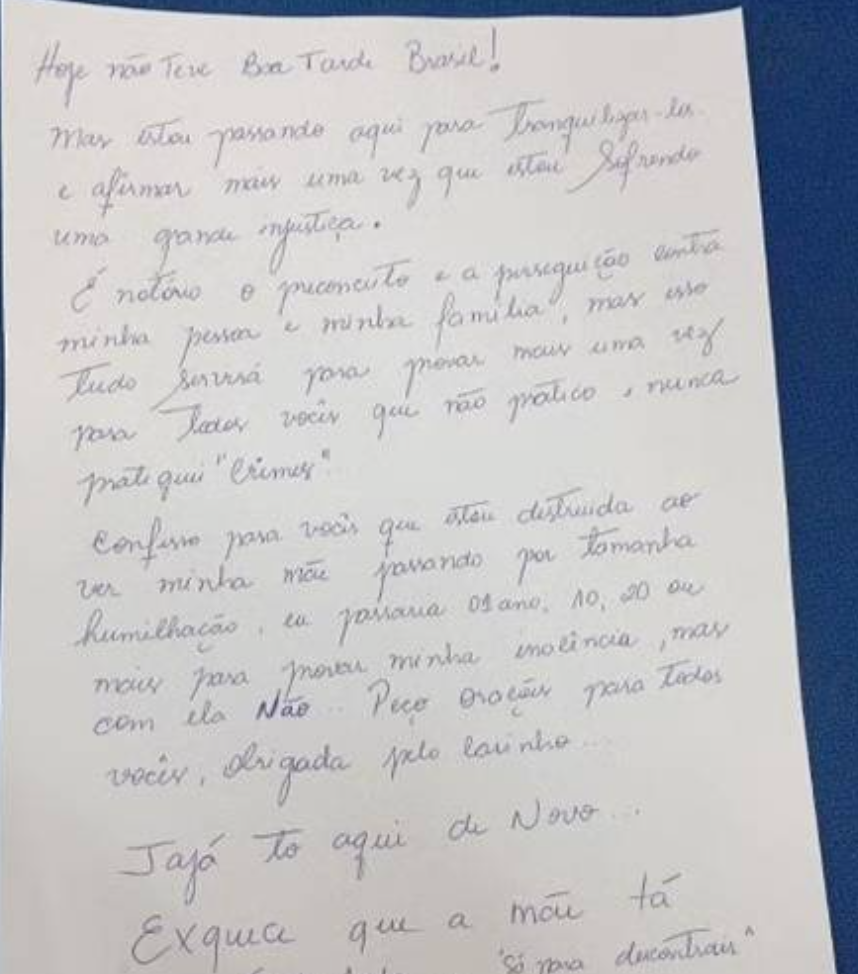 Hoje não Teve Boa Tarde Brasil!
Mas estou passando aqui para Tranquilizar-los
e afirmar mais uma vez que estou Sofrendo
uma grande injustiça.
É notório o preconceito e a perseguição contra
minha pessoa e minha família, mas isso
Tudo Servirá para provar mais uma vez
para Todos vocês que não pratico, nunca
pratiquei "Crimes".
Confesso para vocês que estou destruida ao
ver minha mãe passando por Tamanha
humilhação, eu passaria 01 ano, 10, 20 ou
mais para provar minha inocência, mas
com ela Não... Peço orações para Todos
vocês, obrigada pelo carinho...
Jajá To aqui de Novo...
Exquece que a mãe tá
"Só para descontrair"